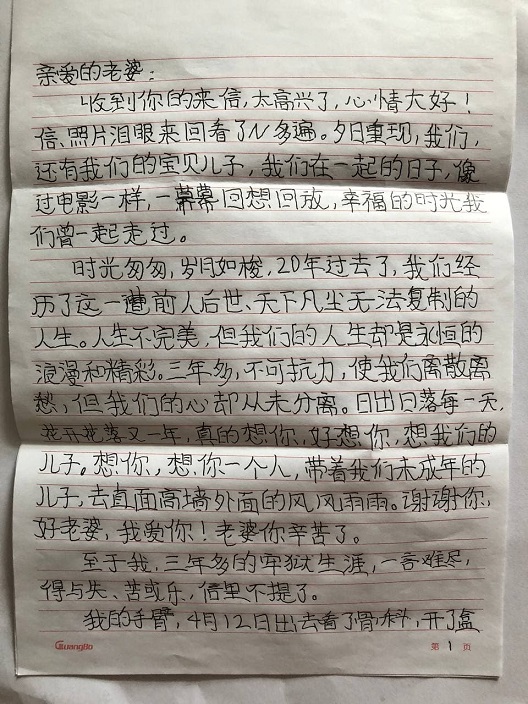 亲爱的老婆：
收到你的来信，太高兴了，心情大好！
信、照片泪眼来回看了N多遍。夕日重现，我们，
还有我们的宝贝儿子，我们在一起的日子，像
过电影一样，一幕幕回想回放，幸福的时光我
们曾一起走过。
时光匆匆，岁月如梭，20年过去了，我们经
历了这一遭前人后世、天下凡尘无法复制的
人生。人生不完美，但我们的人生却是永恒的
浪漫和精彩。三年多，不可抗力，使我们离散离
愁，但我们的心却从未分离。日出日落每一天，
花开花落又一年，真的想你，好想你，想我们的
儿子。想你，想你一个人，带着我们未成年的
儿子，去直面高墙外面的风风雨雨。谢谢你，
好老婆，我爱你！老婆你辛苦了。
至于我，三年多的牢狱生涯，一言难尽，
得与失、苦或乐，信里不提了。
我的手臂，4月12日出去看了骨科，开了盒
GuangBo
第 1 页